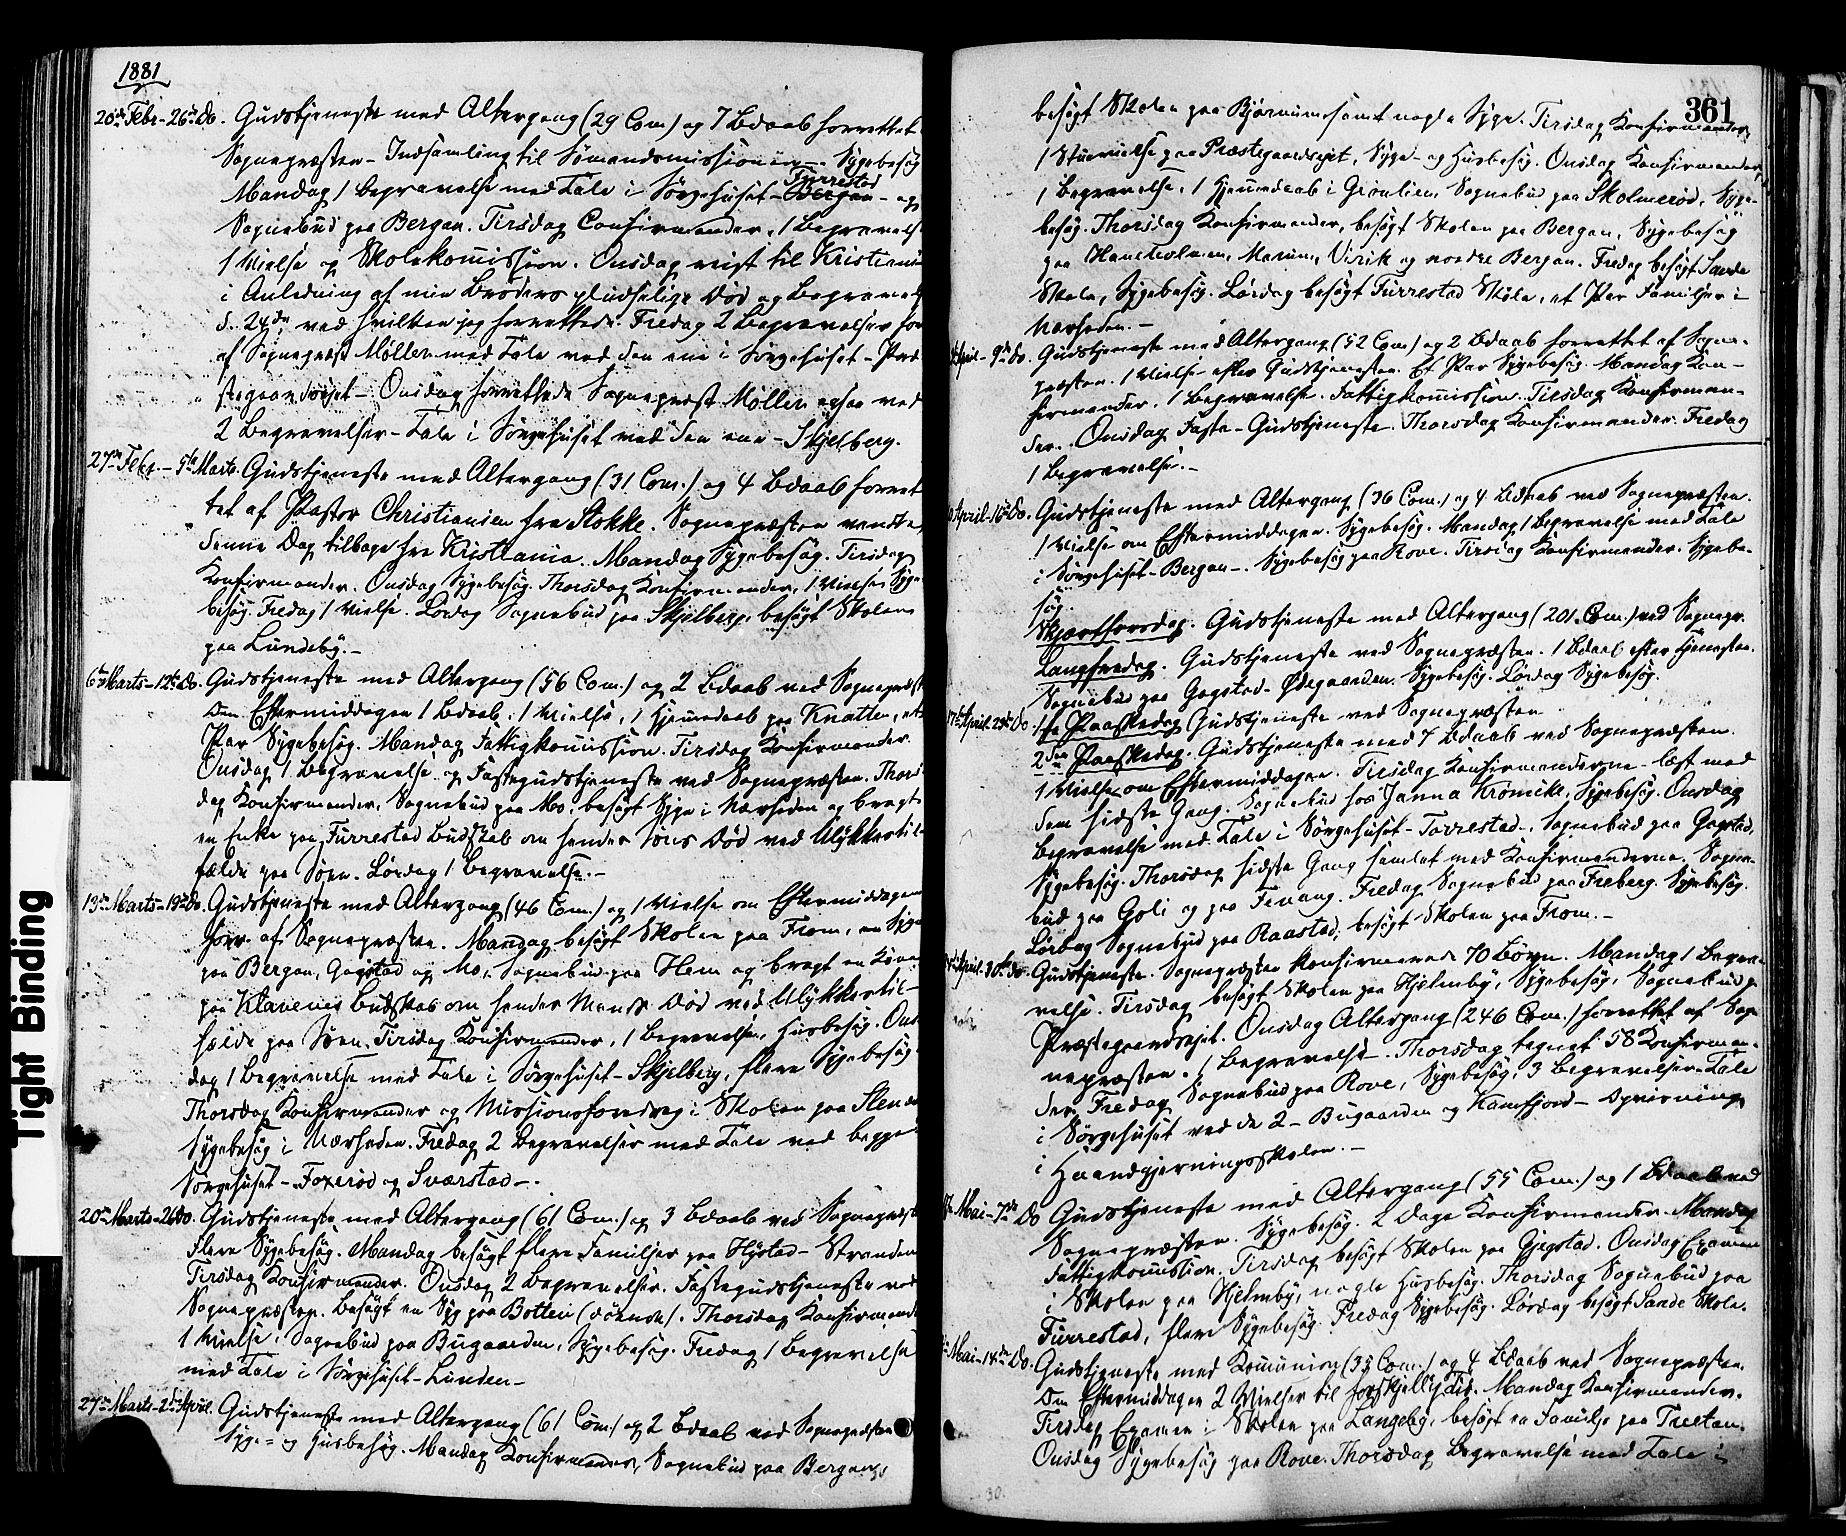 1881
20de Febr-26de Do. Gudstjeneste med Altergang (29 Com.) og 7 Bdaab forrettet
Sognepræsten - Indsamling til Sömandsmissionen -. Sygebesög
Turrestad
Mandag 1 Begravelse med Tale i Sørgehuset - Bergan - og
Sognebud paa Bergan. Tirsdag Confirmander, 1 Begravelse
1 Vielse og Skolekomission. Onsdag reist til Kristiania
i Anledning af min Broders pludselige Död og Begravelse
d. 24de, ved hvilken jeg forrettede. Fredag 2 Begravelser for
af Sognepræst Møller med Tale ved den ene i Sørgehuset - Præ
stegaardseiet - Onsdag forrettede Sognepræst Møller ogsaa ved
2 Begravelser - Tale i Sørgehuset ved den ene - Skjelberg.
27de Febr. - 5te Marts. Gudstjeneste med Altergang (31 Com.) og 4 Bdaab forret
tet af Pastor Christiansen fra Stokke. Sognepræsten vendte
denne Dag tilbage fra Kristiania. Mandag Sygebesög. Tirsdag
Konfirmander. Onsdag Sygebesög. Thorsdag Konfirmander, 1 Vielse Syge-
besög. Fredag 1 Vielse. Lørdag Sognebud paa Skjelberg, besögt Skolen
paa Lundeby. -
6te Marts - 12te Do. Gudstjeneste med Altergang (56 Com.) og 2 Bdaab ved Sognepræst
Om Eftermiddagen 1 Bdaab, 1 Vielse, 1 Hjemmedaab paa Knatten, et
Par Sygebesög. Mandag Fattigkomission. Tirsdag Konfirmander.
Onsdag 1 Begravelse og Fastegudstjeneste ved Sognepræsten. Thors-
dag Konfirmander, Sognebud paa Mo, besögt Syge i Nærheden og bragt
en Enke paa Furrestad Budskab om hendes Söns Död ved Ulykkestil-
fælde paa Søen. Lørdag 1 Begravelse. -
13de Marts - 19de Do. Gudstjeneste med Altergang (46 Com.) og 1 Vielse om Eftermiddagen
forr. af Sognepræsten. Mandag besögt Skolen paa From, en Syg
paa Bergan, Gogstad og Mo, Sognebud paa Hem og bragt en Kone
paa Klavenes Budskab om hendes Mands Död ved Ulykkestil-
fælde paa Søen. Tirsdag Konfirmander, 1 Begravelse, Husbesög. Ons
dag 1 Begravelse med Tale i Sørgehuset - Skjelberg, flere Sygebesög
Thorsdag Konfirmander og Missionsforedrag i Skolen paa
Sygebesög i Nærheden. Fredag 2 Begravelser med Tale ved begge
Sørgehuset - Foxerød og Sværstad -.
20de Marts - 26de Do. Gudstjeneste med Altergang (61 Com.) og 3 Bdaab ved Sognepræst
Flere Sygebesög. Mandag besögt flere Familjer paa Hystad - Stranden
Tirsdag Konfirmander. Onsdag 2 Begravelser. Fastegudstjeneste ved
Sognepræsten. Besögt en Syg paa Botten. Thorsdag Konfirmand
1 Vielse, Sognebud paa Bugaarden, Sygebesög. Fredag 1 Begravelse
med Tale i Sørgehuset - Lunden -
27de Marts - 2den April. Gudstjeneste med Altergang (61 Com.) og 2 Bdaab ved Sognepræsten
Syge- og Husbesög. Mandag Konfirmander, Sognebud paa Bergan,
361
besögt Skolen paa Bjørnum samt nogle Syge. Tirsdag Konfirmander,
1 Stuevielse paa Præstegaardseiet, Syge- og Husbesög. Onsdag Konfirmander,
1 Begravelse, 1 Hjemmedaab i Grønlien, Sognebud paa Skolmerød, Syge-
besög. Thorsdag Konfirmander, besögt Skolen paa Bergan, Sygebesög
paa Haneholmen, Marum, Virik og nordre Bergan. Fredag besögt Sande
Skole, Sygebesög. Lørdag besögt Furrestad Skole, et Par Familjer i
Nærheden. -
April - 9de Do. Gudstjeneste med Altergang (52 Com.) og 2 Bdaab forrettet af Sogne-
præsten. 1 Vielse efter Gudstjenesten. Et Par Sygebesög. Mandag Kon-
firmander. 1 Begravelse. Fattigkomission. Tirsdag Konfirman-
der. Onsdag Faste-Gudstjeneste. Thorsdag Konfirmander. Fredag
1 Begravelse. -
April - 16de Do. Gudstjeneste med Altergang (36 Com.) og 4 Bdaab ved Sognepræsten.
1 Vielse om Eftermiddagen. Sygebesög. Mandag 1 Begravelse med Tale
i Sørgehuset - Bergan -. Sygebesög paa Rove. Tirsdag Konfirmander. Sygebe-
sög.
Skjærthorsdag. Gudstjeneste med Altergang (201 Com.) ved Sognepr.
Langfredag. Gudstjeneste ved Sognepræsten. 1 Bdaab efter Tjenesten.
Sognebud paa Gogstad - Ødegaarden. Sygebesög. Lørdag Sygebesög.
17de April - 23de Do. 1ste Paaskedag Gudstjeneste ved Sognepræsten
2den Paaskedag. Gudstjeneste med 7 Bdaab ved Sognepræsten.
1 Vielse om Eftermiddagen. Tirsdag Konfirmanderne - læst med
dem sidste Gang. Sognebud hos Janna Kromike, Sygebesög. Onsdag
Begravelse med Tale i Sørgehuset - Torrestad -, Sognebud paa Gogstad,
Sygebesög. Thorsdag sidste Gang samlet med Konfirmanderne. Sogne-
bud paa Goli og paa Fevang. Fredag Sognebud paa Freberg. Sygebesög.
Lørdag Sognebud paa Raastad, besögt Skolen paa From. -
April - 30te Do. Gudstjeneste. Sognepræsten konfirmerede 70 Børn. Mandag 1 Begra-
velse. Tirsdag besögt Skolen paa Hjelmby, Sygebesög, Sognebud
Præstegaardseiet. Onsdag Altergang (246 Com.) forrettet af Sog-
nepræsten. 1 Begravelse -. Thorsdag tegnet 58 Konfirman-
der. Fredag Sognebud paa Rove, Sygebesög, 3 Begravelser - Tale
i Sørgehuset ved de 2 - Bugaarden og Kamfjord -
i Haandgjerningsskolen. -
Mai - 7de Do Gudstjeneste med Altergang (55 Com.) og 1 Bdaab ved
Sognepræsten. Sygebesög. 2 Dage Konfirmander. Mandag
Fattigkomission. Tirsdag besögt Skolen paa Gjegstad. Onsdag Examen
i Skolen paa Hjelmby, nogle Husbesög. Thorsdag Sognebud paa
Furrestad, flere Sygebesög. Fredag Sygebesög. Lørdag besögt Sande Skole.
Mai - 14de Do. Gudstjeneste med Komunion (33 Com.) og 4 Bdaab ved Sognepræsten.
Om Eftermiddagen 2 Vielser til forskjellig Tid. Mandag Konfirmander.
Tirsdag Examen i Skolen paa Langeby, besögt en Familje paa
Onsdag Sygebesög paa Rove. Thorsdag Begravelse med Tale i
30.
Tight Binding